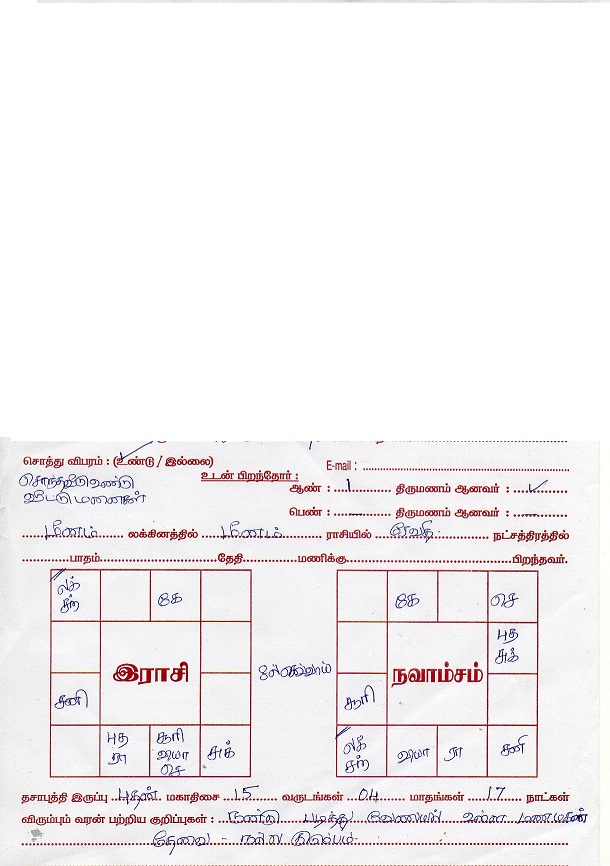 சொத்து விபரம் : (உண்டு / இல்லை)
E-mail :
சொந்தவீடு உண்டு
வீட்டு மனைகள்
உடன் பிறந்தோர் :
ஆண் : 1 திருமணம் ஆனவர் : ✓
பெண் : — திருமணம் ஆனவர் : —
மீனம் லக்கினத்தில் மீனம் ராசியில் ரேவதி நட்சத்திரத்தில்
பாதம் தேதி மணிக்கு பிறந்தவர்.
லக்
சந்
கே
சனி
இராசி
புத
ரா
சூரி
வியா
செ
சுக்
8ல் செவ்வாய்
கே
செ
புத
சுக்
சூரி
நவாம்சம்
லக்
சந்
வியா
ரா
சனி
தசாபுத்தி இருப்பு புதன் மகாதிசை 15 வருடங்கள் 04 மாதங்கள் 17 நாட்கள்
விரும்பும் வரன் பற்றிய குறிப்புகள் : நன்கு படித்து வேலையில் உள்ள மணமகன்
தேவை - நல்ல குடும்பம்